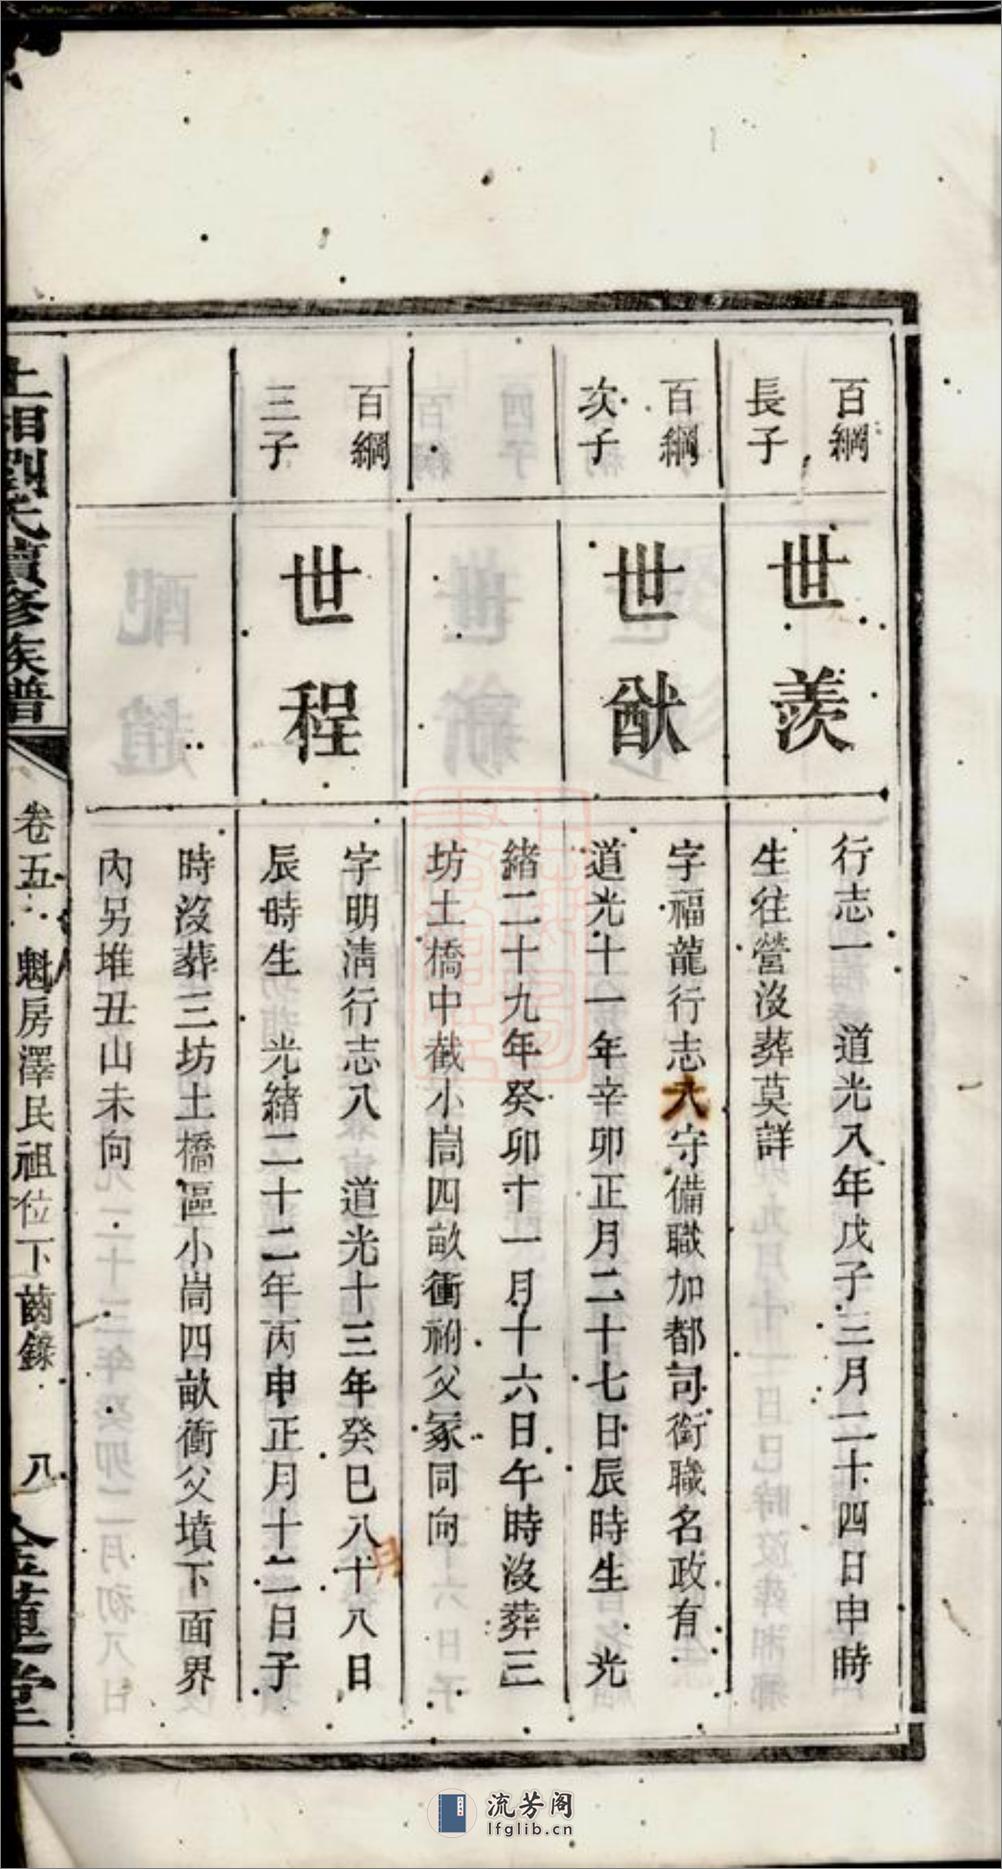 百綱
長子
世羨
行志一 道光八年戊子三月二十四日申時
生往營沒葬莫詳
百綱
次子
世猷
字福龍行志六守備職加都司銜職名政有
道光十一年辛卯正月二十七日辰時生 光
緒二十九年癸卯十一月十六日午時沒葬三
坊土橋中截小崗四畝衝祔父冢同向
百綱
三子
世程
字明淸行志八 道光十三年癸巳八十八日
月
辰時生 光緒二十二年丙申正月十二日子
時沒葬三坊土橋區小崗四畝衝父墳下面界
內另堆丑山未向
上湘劉氏續修族譜
卷五 魁房澤民祖位下齒錄 八
流芳阁
lfglib.cn